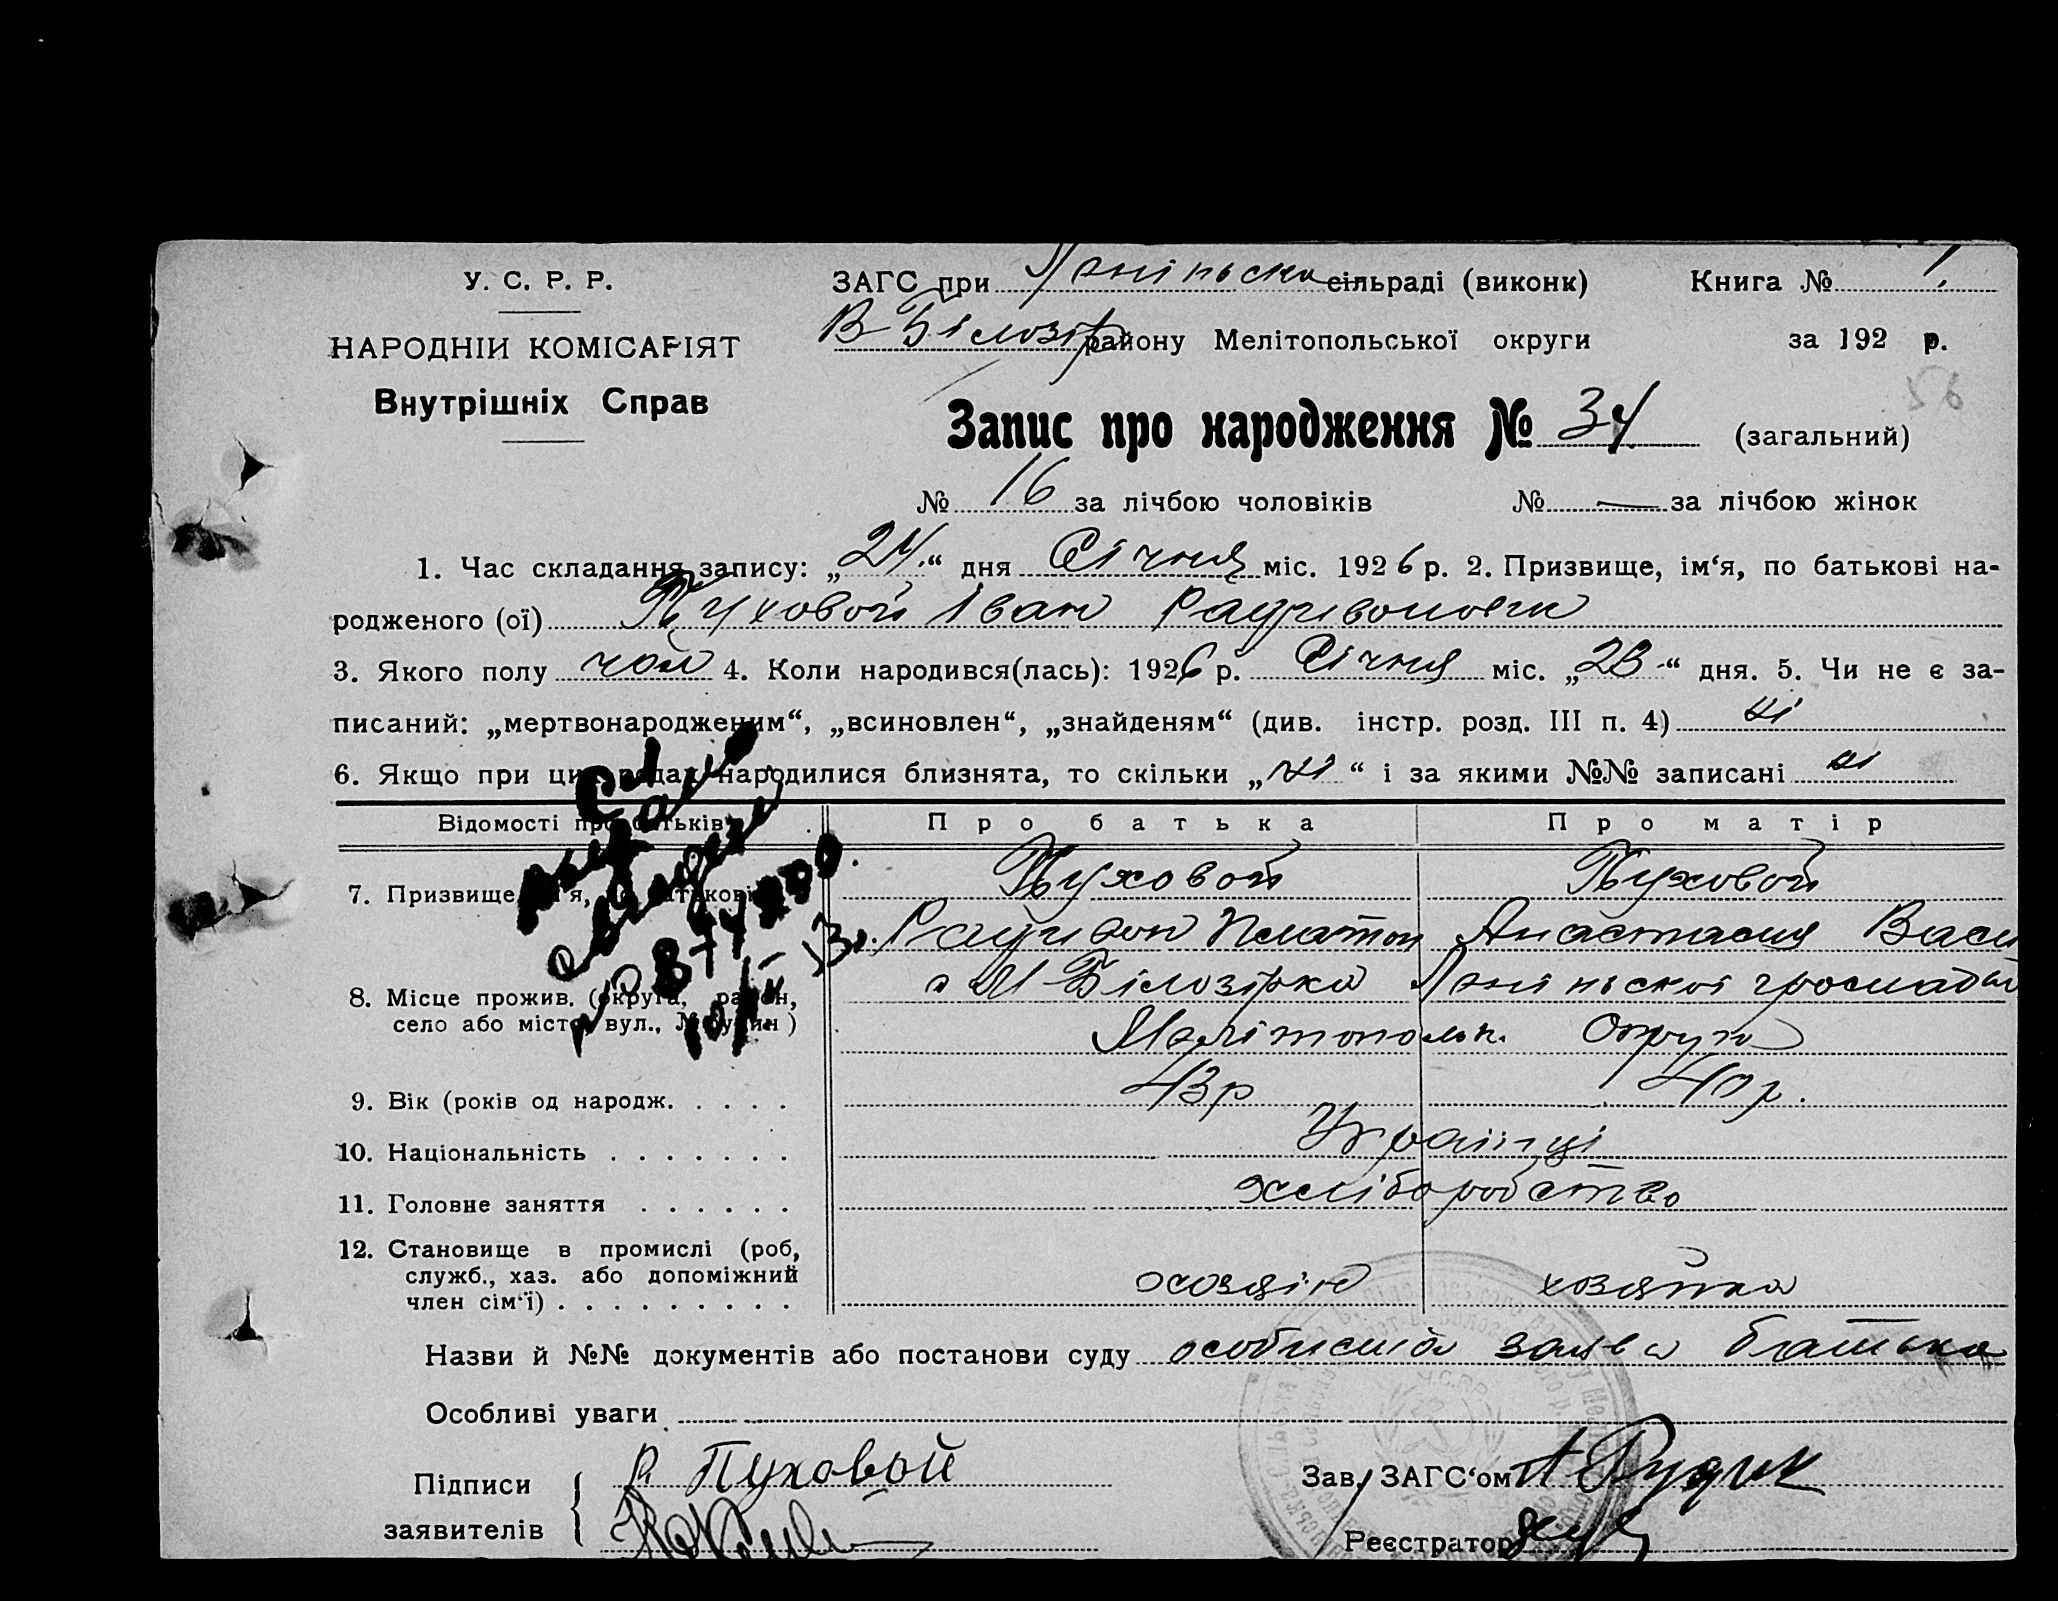 У. С. Р. Р.
ЗАГС при сільраді (виконк) Книга № 1.
НАРОДНІЙ КОМІСАРІЯТ
В Білозір району Мелітопольської округи за 192 р.
Внутрішніх Справ
56
Запис про народження № 34 (загальний)
№ 16 за лічбою чоловіків № — за лічбою жінок
1. Час складання запису: „24.“ дня Січня міс. 1926 р. 2. Призвище, ім‘я, по батькові на-
родженого (ої) Пуховой Іван
3. Якого полу чол 4. Коли народився(лась): 1926 р. Січня міс. „23“ дня. 5. Чи не є за-
писаний: „мертвонародженим“, „всиновлен“, „знайденям“ (див. інстр. розд. III п. 4) ні
6. Якщо при ци родах народилися близнята, то скільки „ні“ і за якими №№ записані ні
Відомості про батьків Про батька Про матір
7. Призвище, ім‘я, по батькові Пуховой Пуховой
Платон Анастасия Васи
8. Місце прожив. (округа, район, М-Білозірка громади
село або місто, вул., № будин) Мелітопольк. Округи
9. Вік (років од народж. . . . . 43 р 40 р.
10. Національність . . . . . . . Українці
11. Головне заняття . . . . . . хліборобство
12. Становище в промислі (роб,
служб., хаз. або допоміжний хозяін хозяйка
член сім‘ї) . . . . . . . . .
Назви й №№ документів або постанови суду особиста заява батька
Особливі уваги
Підписи Р Пуховый Зав. ЗАГС‘ом А Рудик
заявителів Реєстратор